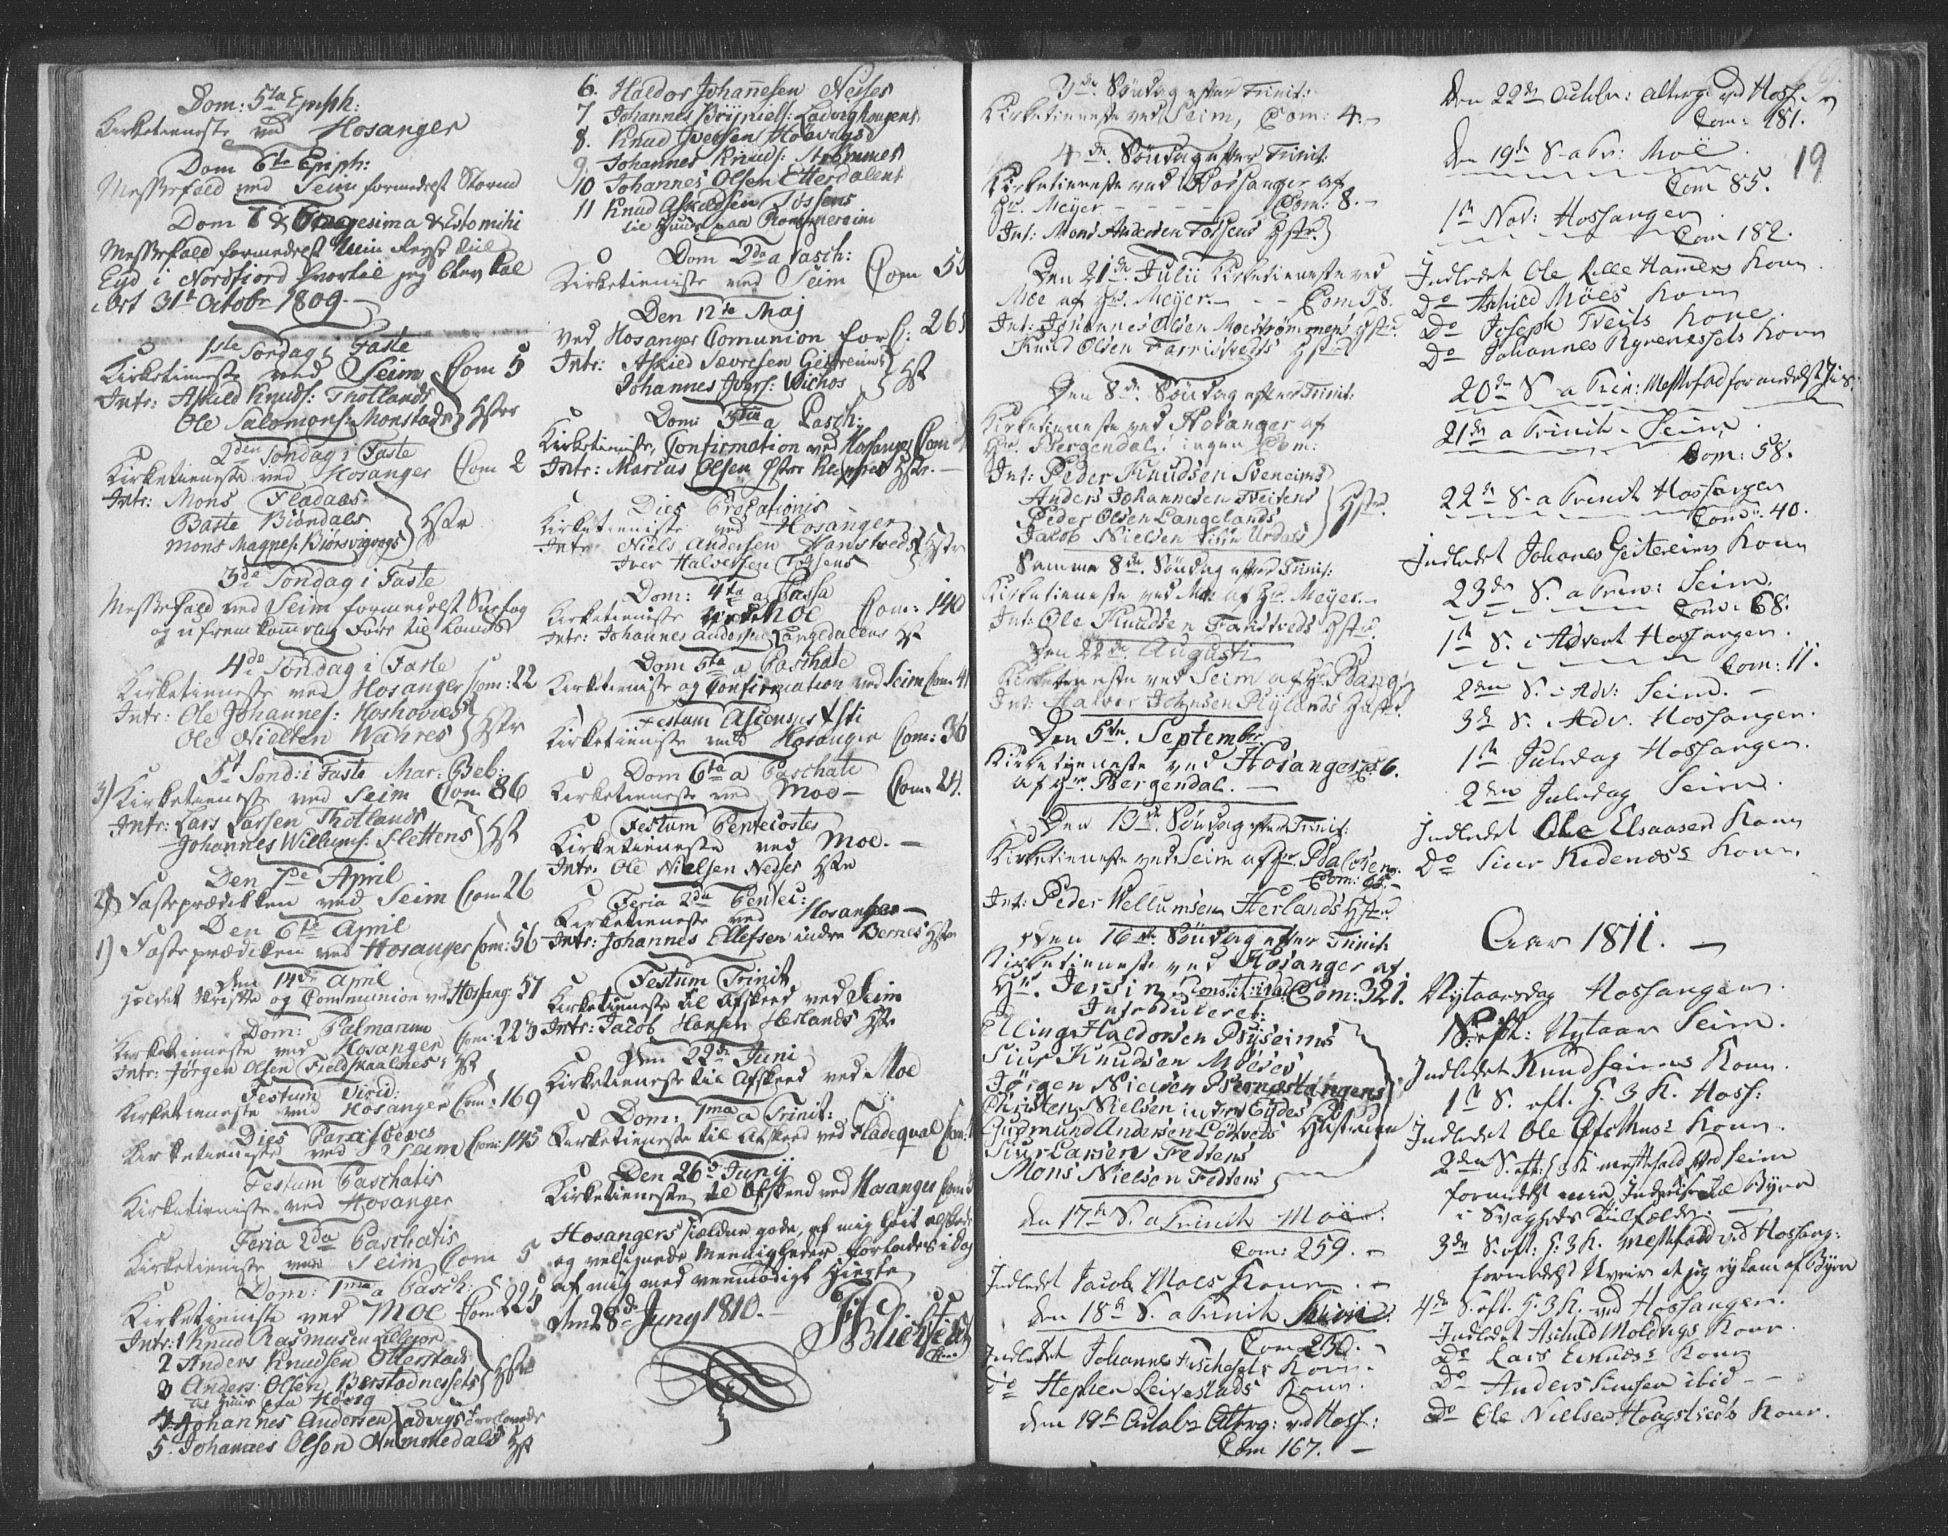 Dom: 5ta Epiph:
Kirketieneste ved Hosanger
Dom 6te Epiph:
Messefald ved Seim formedelst Storm
Dom 7 & gesima & Estomihi
Messefald formedelst min Reise til
Eyd i Nordfjord hvortil jeg blev kal
det 31te Octobr 1809.
1ste Søndag i Faste
Kirketieneste ved Seim Com 5
Intr: Askild Knuds: Thotlands
Ole Salomons: Monstads Hstr
2den Søndag i Faste
Kirketieneste ved Hosanger Com 2
Intr: Mons Fladaas
Baste Biøndals
Mons Magnes: Biørsvigvogs Hstr
3de Søndag i Faste
Messefald ved Seim formedelst
og ufremkommelig Føre til Lands
4de Søndag i Faste
Kirketieneste ved Hosanger Com: 22
Intr: Ole Johannes: Hoshovdes
Ole Nielsen Wahres Hstr
5t Sønd: i Faste Mar: Beb:
3) Kirketieneste ved Seim Com 86
Intr: Lars Larsen Thotlands
Johannes Willums: Slettens Hst
Den 7de April
2) Fasteprædikken ved Seim Com 26
Den 6te April
1) Fasteprædiken ved Hosanger Com: 56
Den 14de April
holdet Skrifte og Communion ved Hosang: 57
Dom: Palmarum
Kirketieneste ved Hosanger Com: 223
Intr: Jørgen Olsen Fieldskaalnes: Hst
Festum Virid:
Kirketieneste ved Hosanger Com: 169
Dies Parasceves
Kirketieneste ved Seim Com: 145
Festum Paschatis
Kirketieneste ved Hosanger
Feria 2da Paschatis
Kirketieneste ved Seim Com 5
Dom: 1ma a Pasch:
Kirketieneste ved Moe Com 225
Intr: 1 Knud Rasmusen
2 Anders Knudsen Otterstad
3 Anders Olsen Berstadnessets Hstr
til Huus paa Høvig
4 Johannes Andersen
5. Johannes Olsen Nummedals Hst
6. Haldor Johannesen Neses
7 Johannes Brÿniels: Ladvighougens
8. Knud Iversen Hølevigs
9. Johannes Knuds: Strømmes
10 Johannes Olsen Etterdalens
11 Knud Askildsen Tossens
til Huus paa Rommereim
Dom 2da a Pasch:
Kirketieneste ved Seim Com 55
Den 12te Maj
ved Hosanger Comunion for C: 265
Intr: Askied Sævresen Geitreims
Johannes Ivers: Vichos Hst
Dom: 3tia a Pasch:
Kirketieneste, Confirmation ved Hosanger Com
Intr: Marcus Olsen Øster Hst:
Dies Precationis
Kirketieneste ved Hosanger
Intr: Niels Andersen Hanstveds Hstr
Iver Halvorsen Tossens
Dom: 4ta a Passa
Kirketieneste ved Moe Com: 140
Intr: Johannes Andersen Langedalens Hst
Dom 5ta a Paschate
Kirketieneste og Confirmation ved Seim Com 41
Festum Ascensus Xsti
Kirketieneste ved Hosanger Com: 36
Dom 6ta a Paschate
Kirketieneste ved Moe Com: 24.
Festum Pentecostes
Kirketieneste ved Moe.
Intr: Ole Nielsen Neses Hstr
Feria 2da Pentec:
Kirketieneste ved Hosanger
Intr: Johannes Ellefsen indre Bernes Hstr
Festum Trinit
Kirketieneste til Afskeed ved Seim
Intr: Jacob Hansen Herlands Hstr
Den 22de Juni
Kirketieneste til Afskeed ved Moe
Dom: 1ma a Trinit:
Kirketieneste til Afskeed ved Fladequal Com:
Den 26de Junij
Kirketieneste til Afskeed ved Hosanger Com:
Hosangers sieldne gode, af mig høit elskede
og velsignede Meenigheder forlades i Dag
af mig med veemodigt Hierte
den 28de Junÿ 1810.
3de Søndag efter Trinit:
Kirketieneste ved Seim, Com: 4.
4de Søndag efter Trinit:
Kirketieneste ved Hossanger af
Hr. Meyer Com: 8.
Int: Mons Andersen Tossens Hstr.
Den 21de Julii Kirketieneste ved
Moe af Hr. Meyer. Com 58.
Int: Johannes Olsen Moestrømmens Hstr.
Knud Olsen Farristvedts Hstr
Den 8de Søndag efter Trinit:
Kirketieneste ved Hosanger af
Hr. Bergendal. ingen Com:
Int: Peder Knudsen Sveneims
Anders Johannesen Tveitens
Peder Olsen Langelands Hstr.
Jacob Nielsen Urdals
Samme 8de Søndag efter Trinit:
Kirketieneste ved Moe af Hr. Meyer.
Int: Ole Knudsen Fanstveds Hstr.
Den 22de Augusti
Kirketieneste ved Seim af Hr Bang
Int: Halvor Johnsen Rÿlands Hstr.
Den 5te September
Kirketieneste ved Hosanger C: 6.
af Hr. Bergendal.
Den 13de Søndag efter Trinit:
Kirketieneste ved Seim af Hr Balchen
Com:
Int: Peder Wellumsen Herlands Hstr.
Den 16de Søndag efter Trinit:
Kirketieneste ved Hosanger af
Hr. Jersin Com: 321.
Introduceret:
Elling Haldorsen Rÿseims
Siur Knudsen Møeses
Jørgen Nielsen Bernestangens
Christen Nielsen indre Eÿdes
Gudmund Andersen Løtveds Hustruer
Siur Larsen Fedtens
Mons Nielsen Fedtens
Den 17de S. a Trinit Moe.
Com: 259.
Indledet Jacob Moes Kone.
Den 18de S. a Trinit Seim.
Com 230.
Indledet Johannes Kone
do Stephen Leirestads Kone.
den 19de Octobr Alterg: ved Hoss:
Com 167.
Den 22de Octobr: alterg: ved Hoss.
Com: 181.
19
Den 19de S. a Tr: Moe
Com 85.
1te Nov: Hossanger
Com 182.
Indledet Ole Lille Hamers Kone
Do Askild Moes Kone
Do Joseph Tveits Kone.
Do Johannes Kyrenessets Kone
20de S. a Trin: Messefald formedelst
21de a Trinit Seim.
Com: 58.
22de S. a Trinit Hossanger
Com: 40.
Indledet Johanes Geitereims Kone
23de S. a Trin: Seim.
Com: 68.
1te S. i Advent Hossanger.
Com: 11.
2den S. i Adv: Seim.
3de S. Adv. Hossanger.
1te Juledag Hossanger.
2den Juledag Seim.
Indledet Ole Elsaasen Kone
Do Siur Kidenæss Kone.
Aar 1811.
Nytaarsdag Hossanger.
1 S. eft: Nytaar Seim.
Indledet Knud Seims Kone.
1te S. eft. H. 3 K. Hoss:
Indledet Ole Kone.
2den S. eft: H: 3 K messefald ved Seim
formedelst min Indreise til Byen
i Svagheds tilfælde.
3de S. eft: H: 3 K. Messefald ved Hossang:
formedelst Uveir at jeg ey kom af Byen
4de S. eft. H. 3 K. ved Hossanger.
Indledet Aschild Moldvigs Kone.
Do Lars Eknæss Kone
Do Anders Simsen ibid
Do Ole Nielsen Hougstveds Kone.